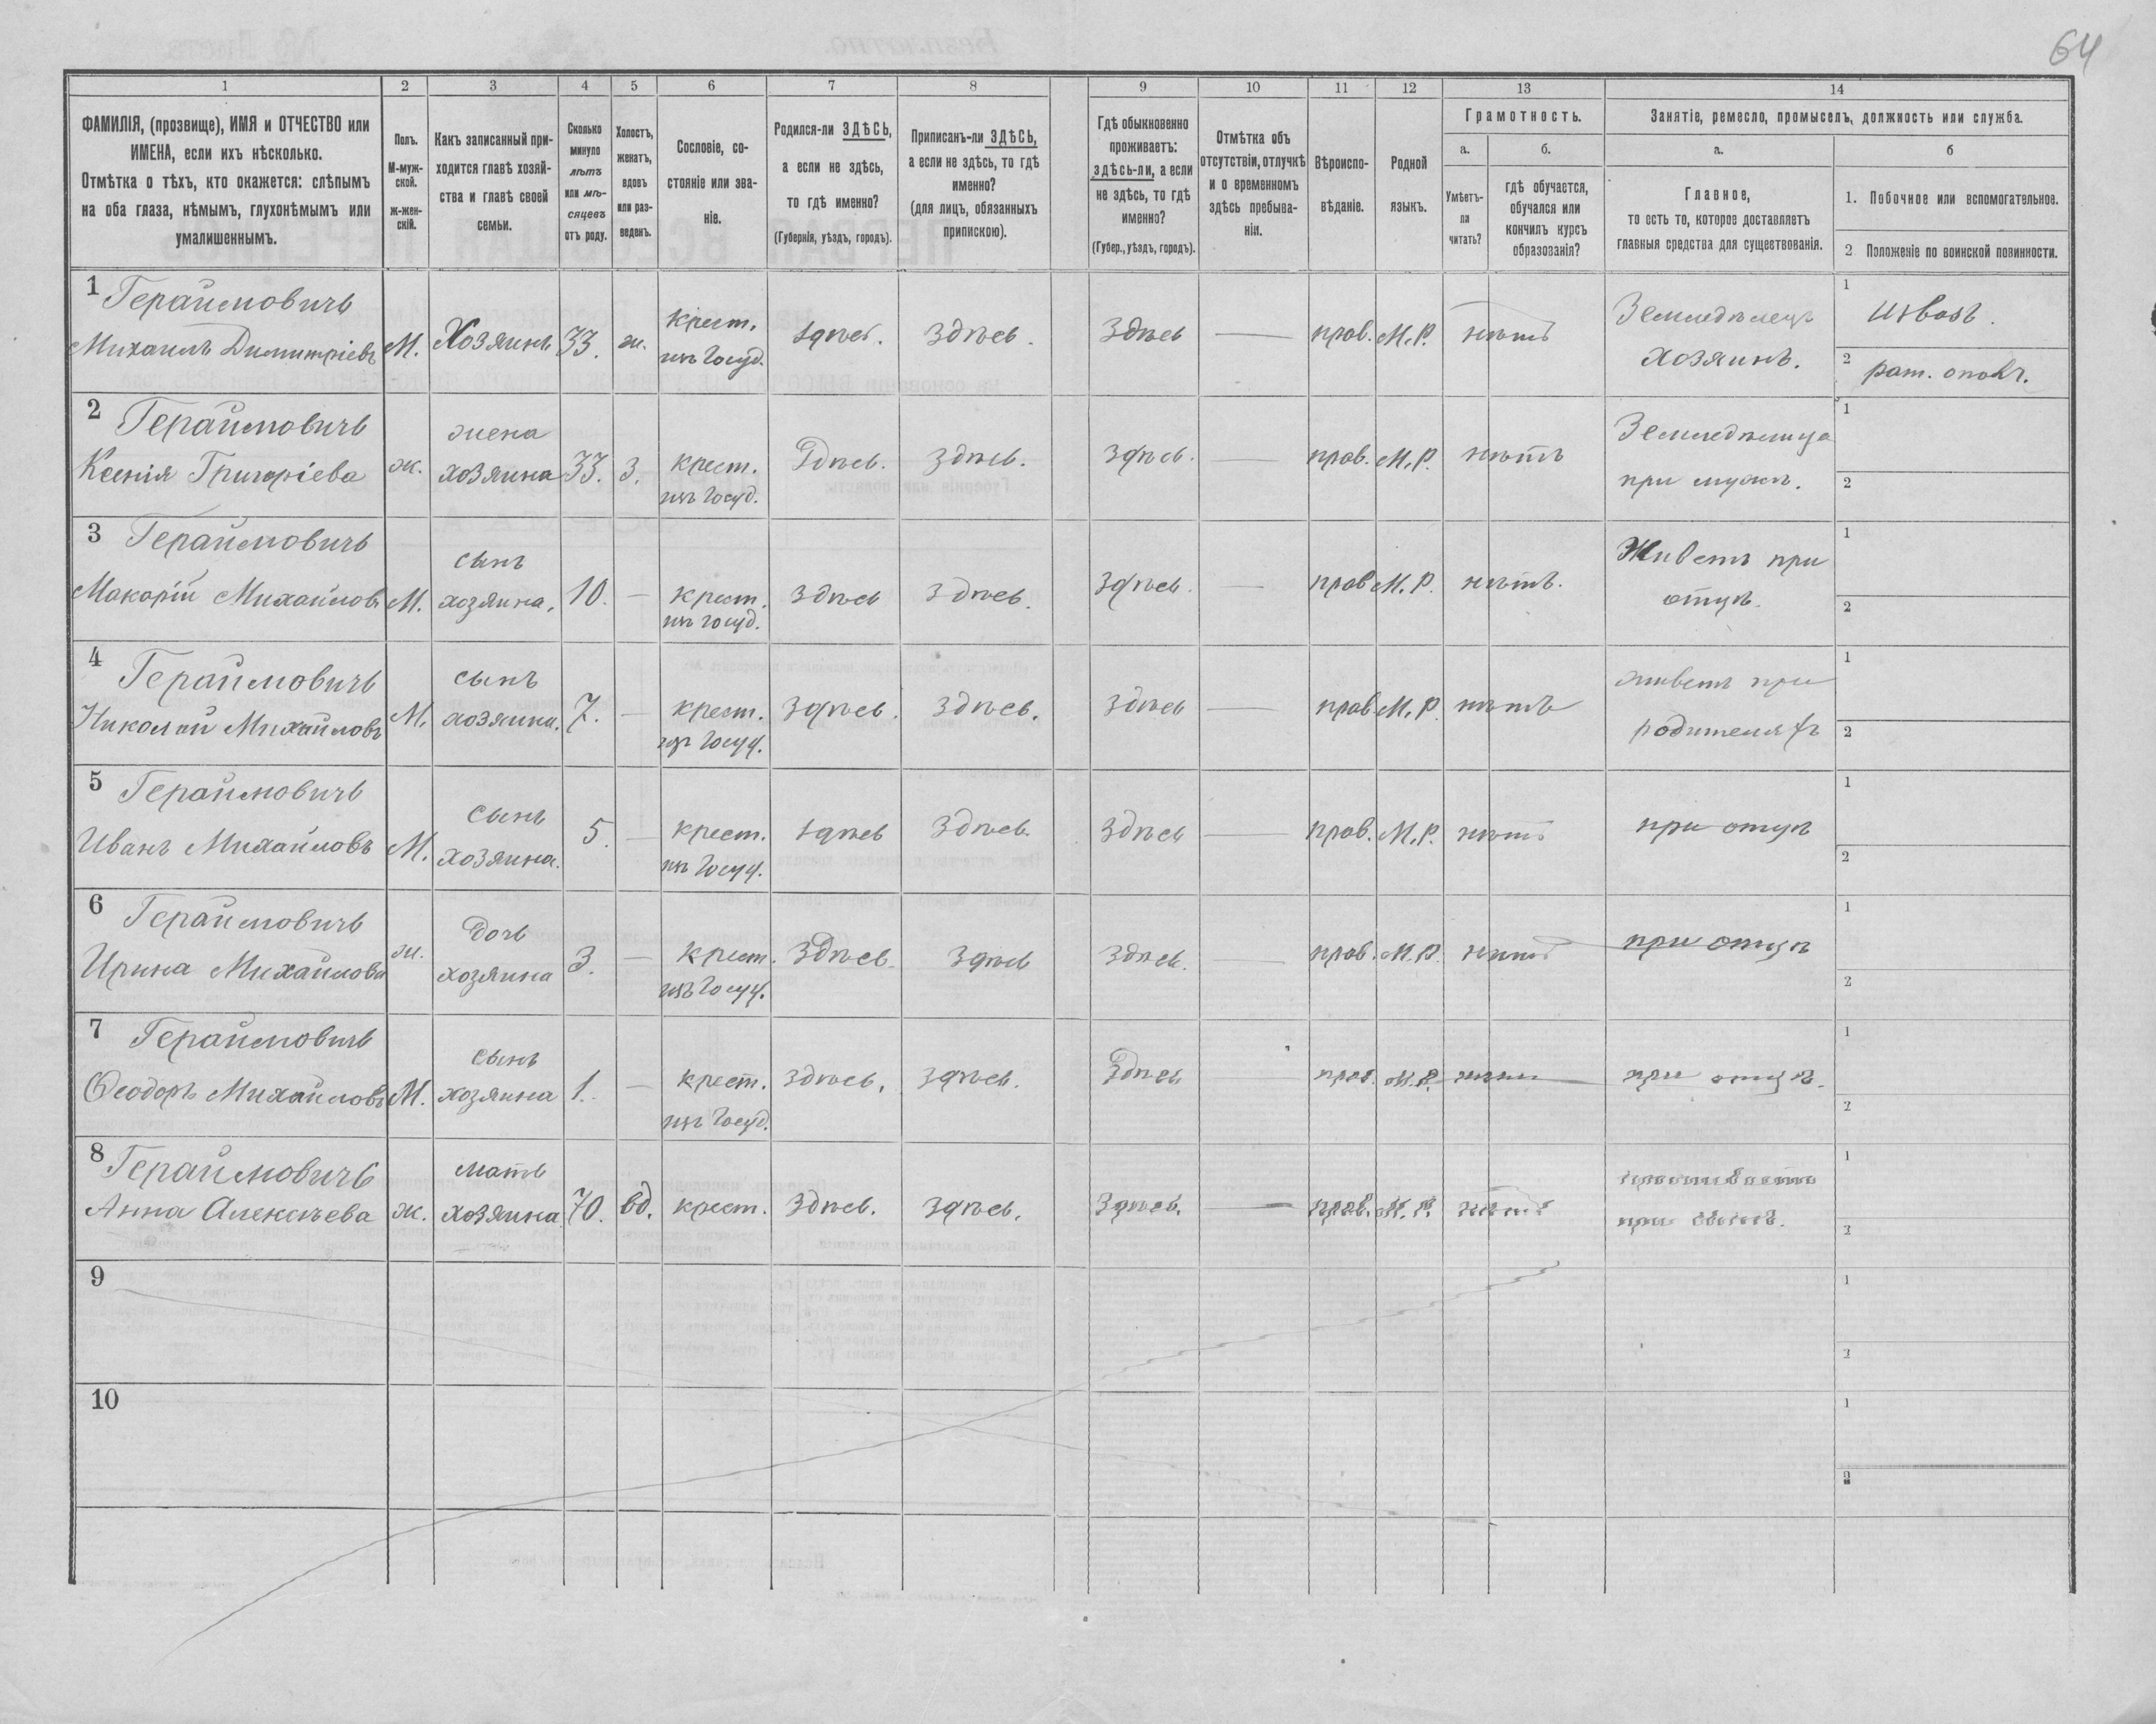 64
1 2 3 4 5 6 7 8 9 10 11 12 13 14
ФАМИЛІЯ, (прозвище), ИМЯ и ОТЧЕСТВО или
ИМЕНА, если ихъ нѣсколько.
Отмѣтка о тѣхъ, кто окажется: слѣпымъ
на оба глаза, нѣмымъ, глухонѣмымъ или
умалишеннымъ.
Полъ.
М-муж-
ской.
ж-жен-
скій.
Какъ записанный при-
ходится главѣ хозяй-
ства и главѣ своей
семьи.
Сколько
минуло
лѣтъ
или мѣ-
сяцевъ
отъ роду.
Холостъ,
женатъ,
вдовъ
или раз-
веденъ.
Сословіе, со-
стояніе или зва-
ніе.
Родился-ли ЗДѢСЬ,
а если не здѣсь,
то гдѣ именно?
(Губернія, уѣздъ, городъ).
Приписанъ-ли ЗДѢСЬ,
а если не здѣсь, то гдѣ
именно?
(для лицъ, обязанныхъ
припискою).
Гдѣ обыкновенно
проживаетъ:
здѣсь-ли, а если
не здѣсь, то гдѣ
именно?
(Губер., уѣздъ, городъ).
Отмѣтка объ
отсутствіи, отлучкѣ
и о временномъ
здѣсь пребыва-
ніи.
Вѣроиспо-
вѣданіе.
Родной
языкъ.
Грамотность.
а.
Умѣетъ-
ли
читать?
б.
гдѣ обучается,
обучался или
кончилъ курсъ
образованія?
Занятіе, ремесло, промыселъ, должность или служба.
а.
Главное,
то есть то, которое доставляетъ
главныя средства для существованія.
б
1. Побочное или вспомогательное.
2 Положеніе по воинской повинности.
1 Гераймовичъ
Михаилъ Димитріевъ М. Хозяинъ 33. ж. крест. изъ Госуд. здѣсь. здѣсь. здѣсь — прав. М.Р. нѣтъ
Земледѣлецъ
хозяинъ.
1 извозъ.
2 рат. ополч.
2 Гераймовичъ
Ксенія Григоріева ж. жена хозяина 33. З. крест. изъ Госуд. Здѣсь. здѣсь. здѣсь. — прав. М.Р. нѣтъ
Земледѣлица
при мужѣ.
1
2
3 Гераймовичъ
Макарій Михайловъ М. сынъ хозяина. 10. — крест. изъ госуд. здѣсь здѣсь. здѣсь. — прав М.Р. нѣтъ.
Живетъ при
отцѣ.
1
2
4 Гераймовичъ
Николай Михайловъ М. сынъ хозяина. 7. — крест. изъ Госуд. здѣсь. здѣсь. здѣсь — прав. М.Р. нѣтъ
живетъ при
родителяхъ
1
2
5 Гераймовичъ
Иванъ Михайловъ М. сынъ хозяина. 5. — крест. изъ Госуд. здѣсь здѣсь. здѣсь — прав. М.Р. нѣтъ
при отцѣ
1
2
6 Гераймовичъ
Ирина Михайлова ж. дочь хозяина 3. — крест. изъ Госуд. здѣсь. здѣсь здѣсь. — прав. М.Р. нѣтъ
при отцѣ
1
2
7 Гераймовичъ
Ѳеодоръ Михайловъ М. сынъ хозяина 1. — крест. изъ Госуд. здѣсь. здѣсь. Здѣсь прав. М.Р. нѣтъ
при отцѣ.
1
2
8 Гераймовичъ
Анна Алексѣева ж. мать хозяина 70. вд. крест. здѣсь. здѣсь. здѣсь. — прав. М.Р. нѣтъ
при
1
2
9
1
2
10
1
2